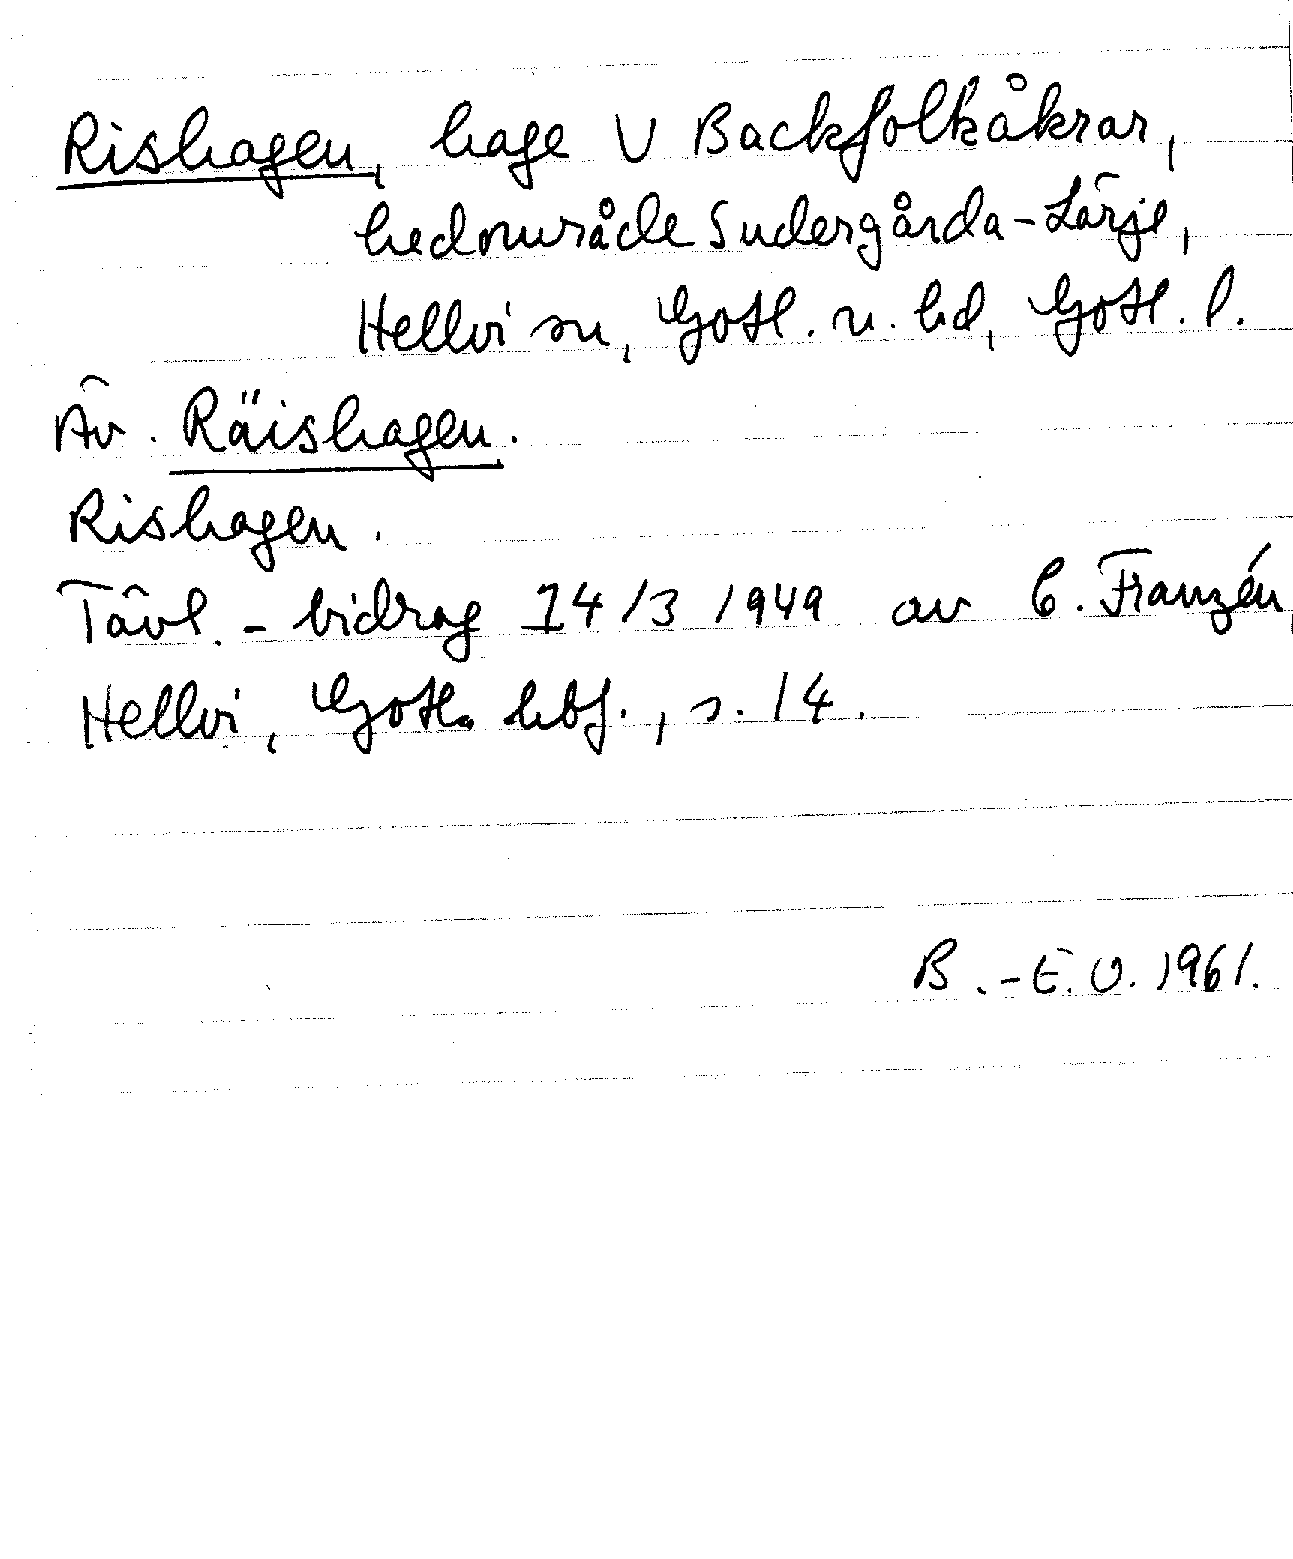 Rishagen, hage V Backfolkåkrar,
hedområde Sudergårda-Lärje,
Hellvi sn, Gotl. n. hd, Gotl. l.
Äv. Räishagen.
Rishagen.
Tävl.-bidrag 14/3 1949 av C. Franzén,
Hellvi, Gotl. hbf., s. 14.
B.-E. O. 1961.